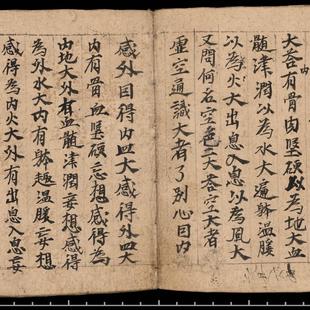 内
大荅有骨肉堅硬以為地大血
髓津潤以為水大遍躰溫煖
以為火大出息入息以為風大
又問何名空色二大荅空大者
虛空通識大者了別心因内
感外因得内四大感得外四大
内有骨血堅硬忘想感得為
内地大外有血髓津潤妄想感得
為外水大内有躰趣溫煖妄想
感得為内火大外有出息入息妄